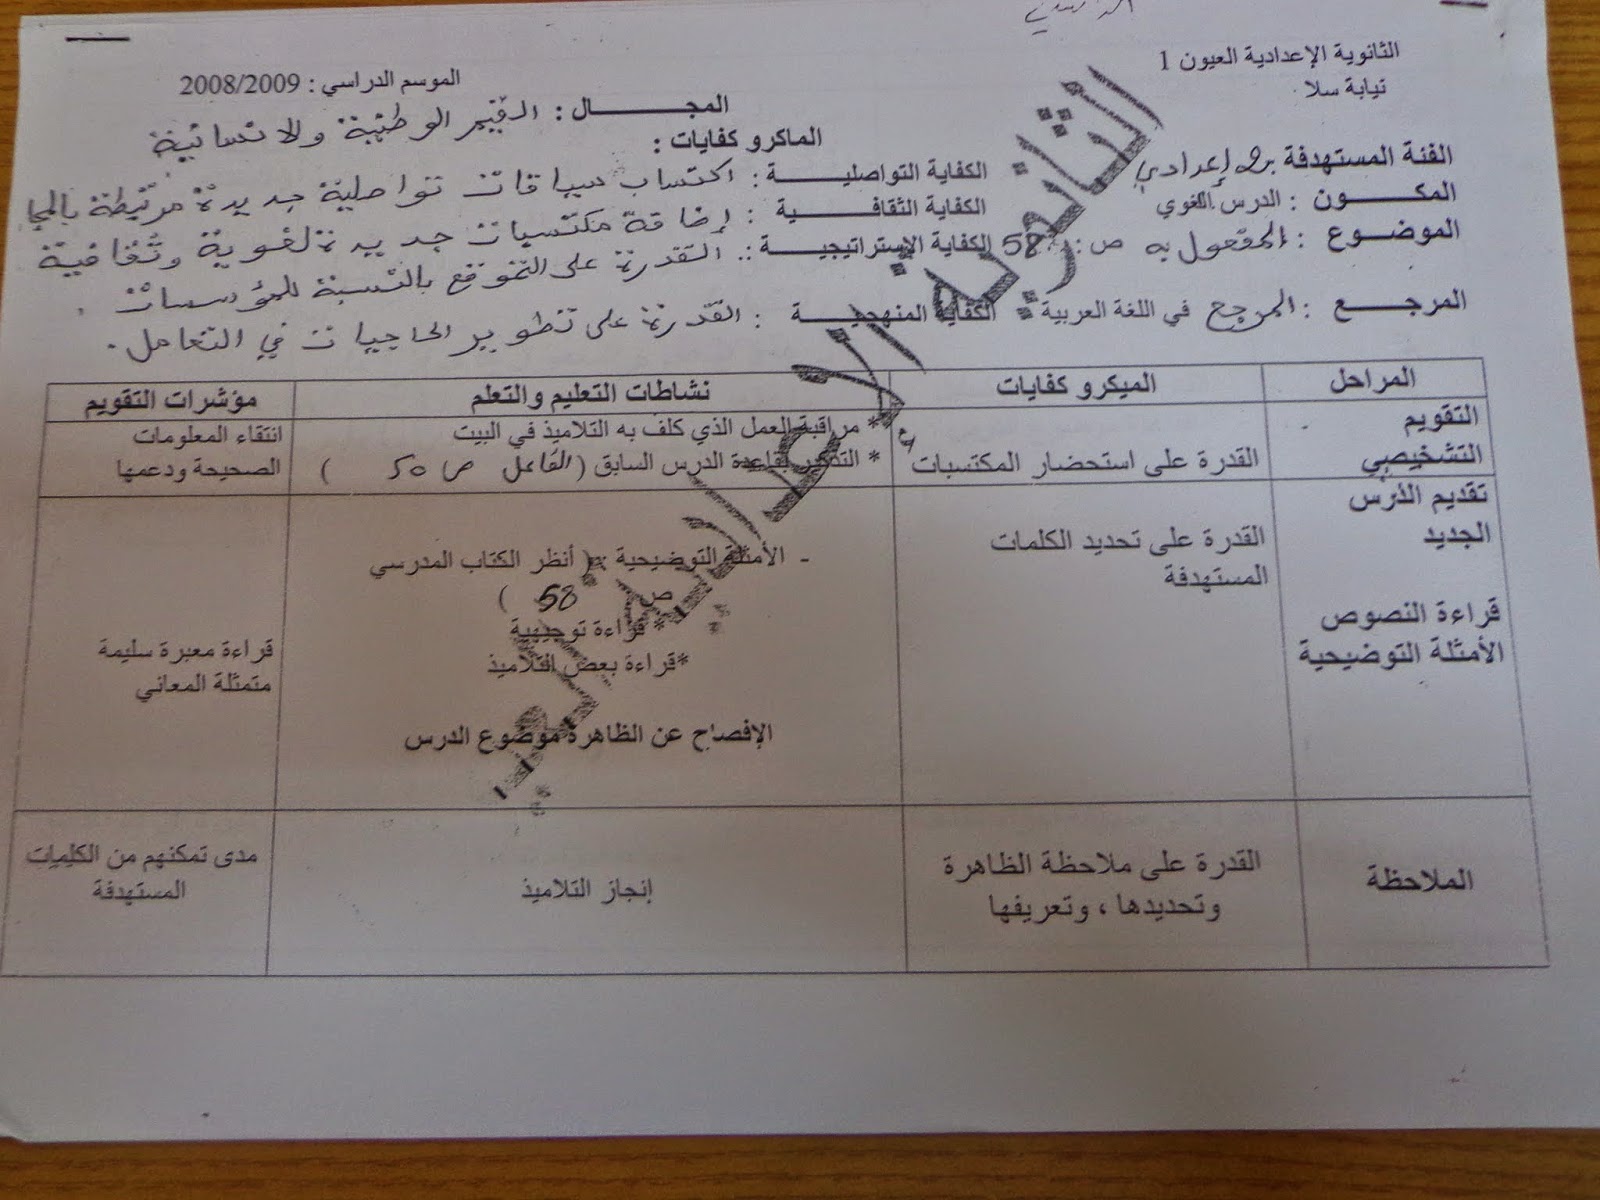 الثانوية الإعدادية العيون 1
نيابة سلا
الموسم الدراسي : 2008/2009
المجـــــال : القيم الوطنية والانسانية
الماكرو كفايات :
الفئة المستهدفة إعدادي
المكـــون : الدرس اللغوي
الموضـــوع : المفعول به ص: 58
المرجـــع : المرجع في اللغة العربية
الكفاية التواصليـــة : اكتساب سياقات تواصلية جديدة مرتبطة بالمجال
الكفاية الثقافـــية : إضافة مكتسبات جديدة لغوية وثقافية
الكفاية الإستراتيجيـة : القدرة على التموقع بالنسبة للمؤسسات .
الكفاية المنهجيـــة : القدرة على تطوير الحاجيات في التعامل .
المراحل
الميكرو كفايات
نشاطات التعليم والتعلم
مؤشرات التقويم
التقويم
التشخيصي
القدرة على استحضار المكتسبات
* مراقبة العمل الذي كلف به التلاميذ في البيت
* التذكير بقاعدة الدرس السابق ( الفاعل ص 50 )
انتقاء المعلومات
الصحيحة ودعمها
تقديم الدرس
الجديد
قراءة النصوص
الأمثلة التوضيحية
القدرة على تحديد الكلمات
المستهدفة
- الأمثلة التوضيحية : ( أنظر الكتاب المدرسي
ص 58 )
* قراءة توجيهية
*قراءة بعض التلاميذ
الإفصاح عن الظاهرة موضوع الدرس
قراءة معبرة سليمة
متمثلة المعاني
الملاحظة
القدرة على ملاحظة الظاهرة
وتحديدها ، وتعريفها
إنجاز التلاميذ
مدى تمكنهم من الكلمات
المستهدفة
الثانوية الإعدادية العيون